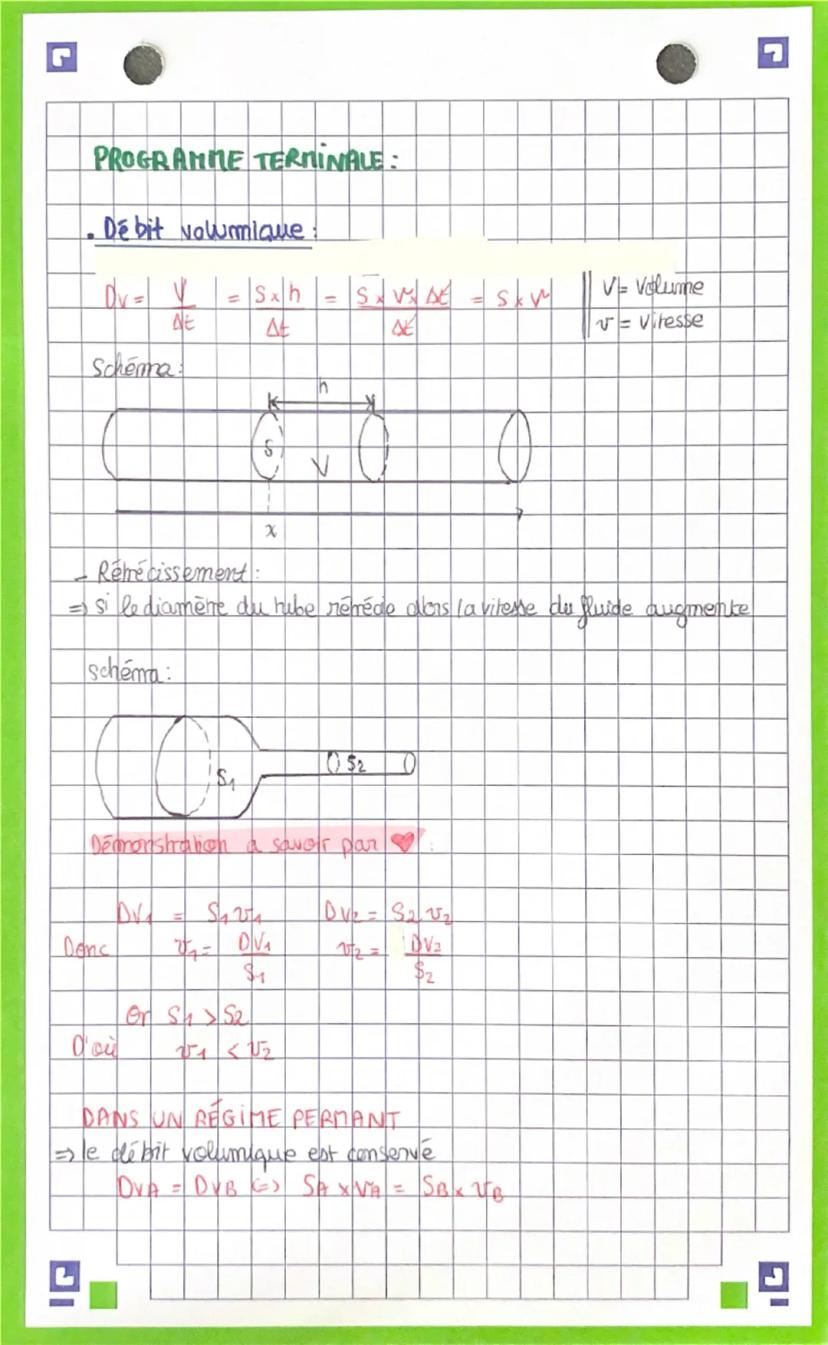 PROGRAMME TERMINALE :
. Débit volumique :
Dv = V/Δt = S x h/Δt = S x v x Δt/Δt = S x v
V = Volume
v = Vitesse
Schéma :
h
S
V
x
- Rétrécissement :
=> si le diamètre du tube rétrécie alors la vitesse du fluide augmente
schéma :
S1
S2
Démonstration a savoir par ♥ :
Dv1 = S1 v1 Dv2 = S2 v2
Donc v1 = Dv1/S1 v2 = Dv2/S2
Or S1 > S2
D'où v1 < v2
DANS UN RÉGIME PERMANT
=> le débit volumique est conservé
DvA = DvB <=> SA x vA = SB x vB